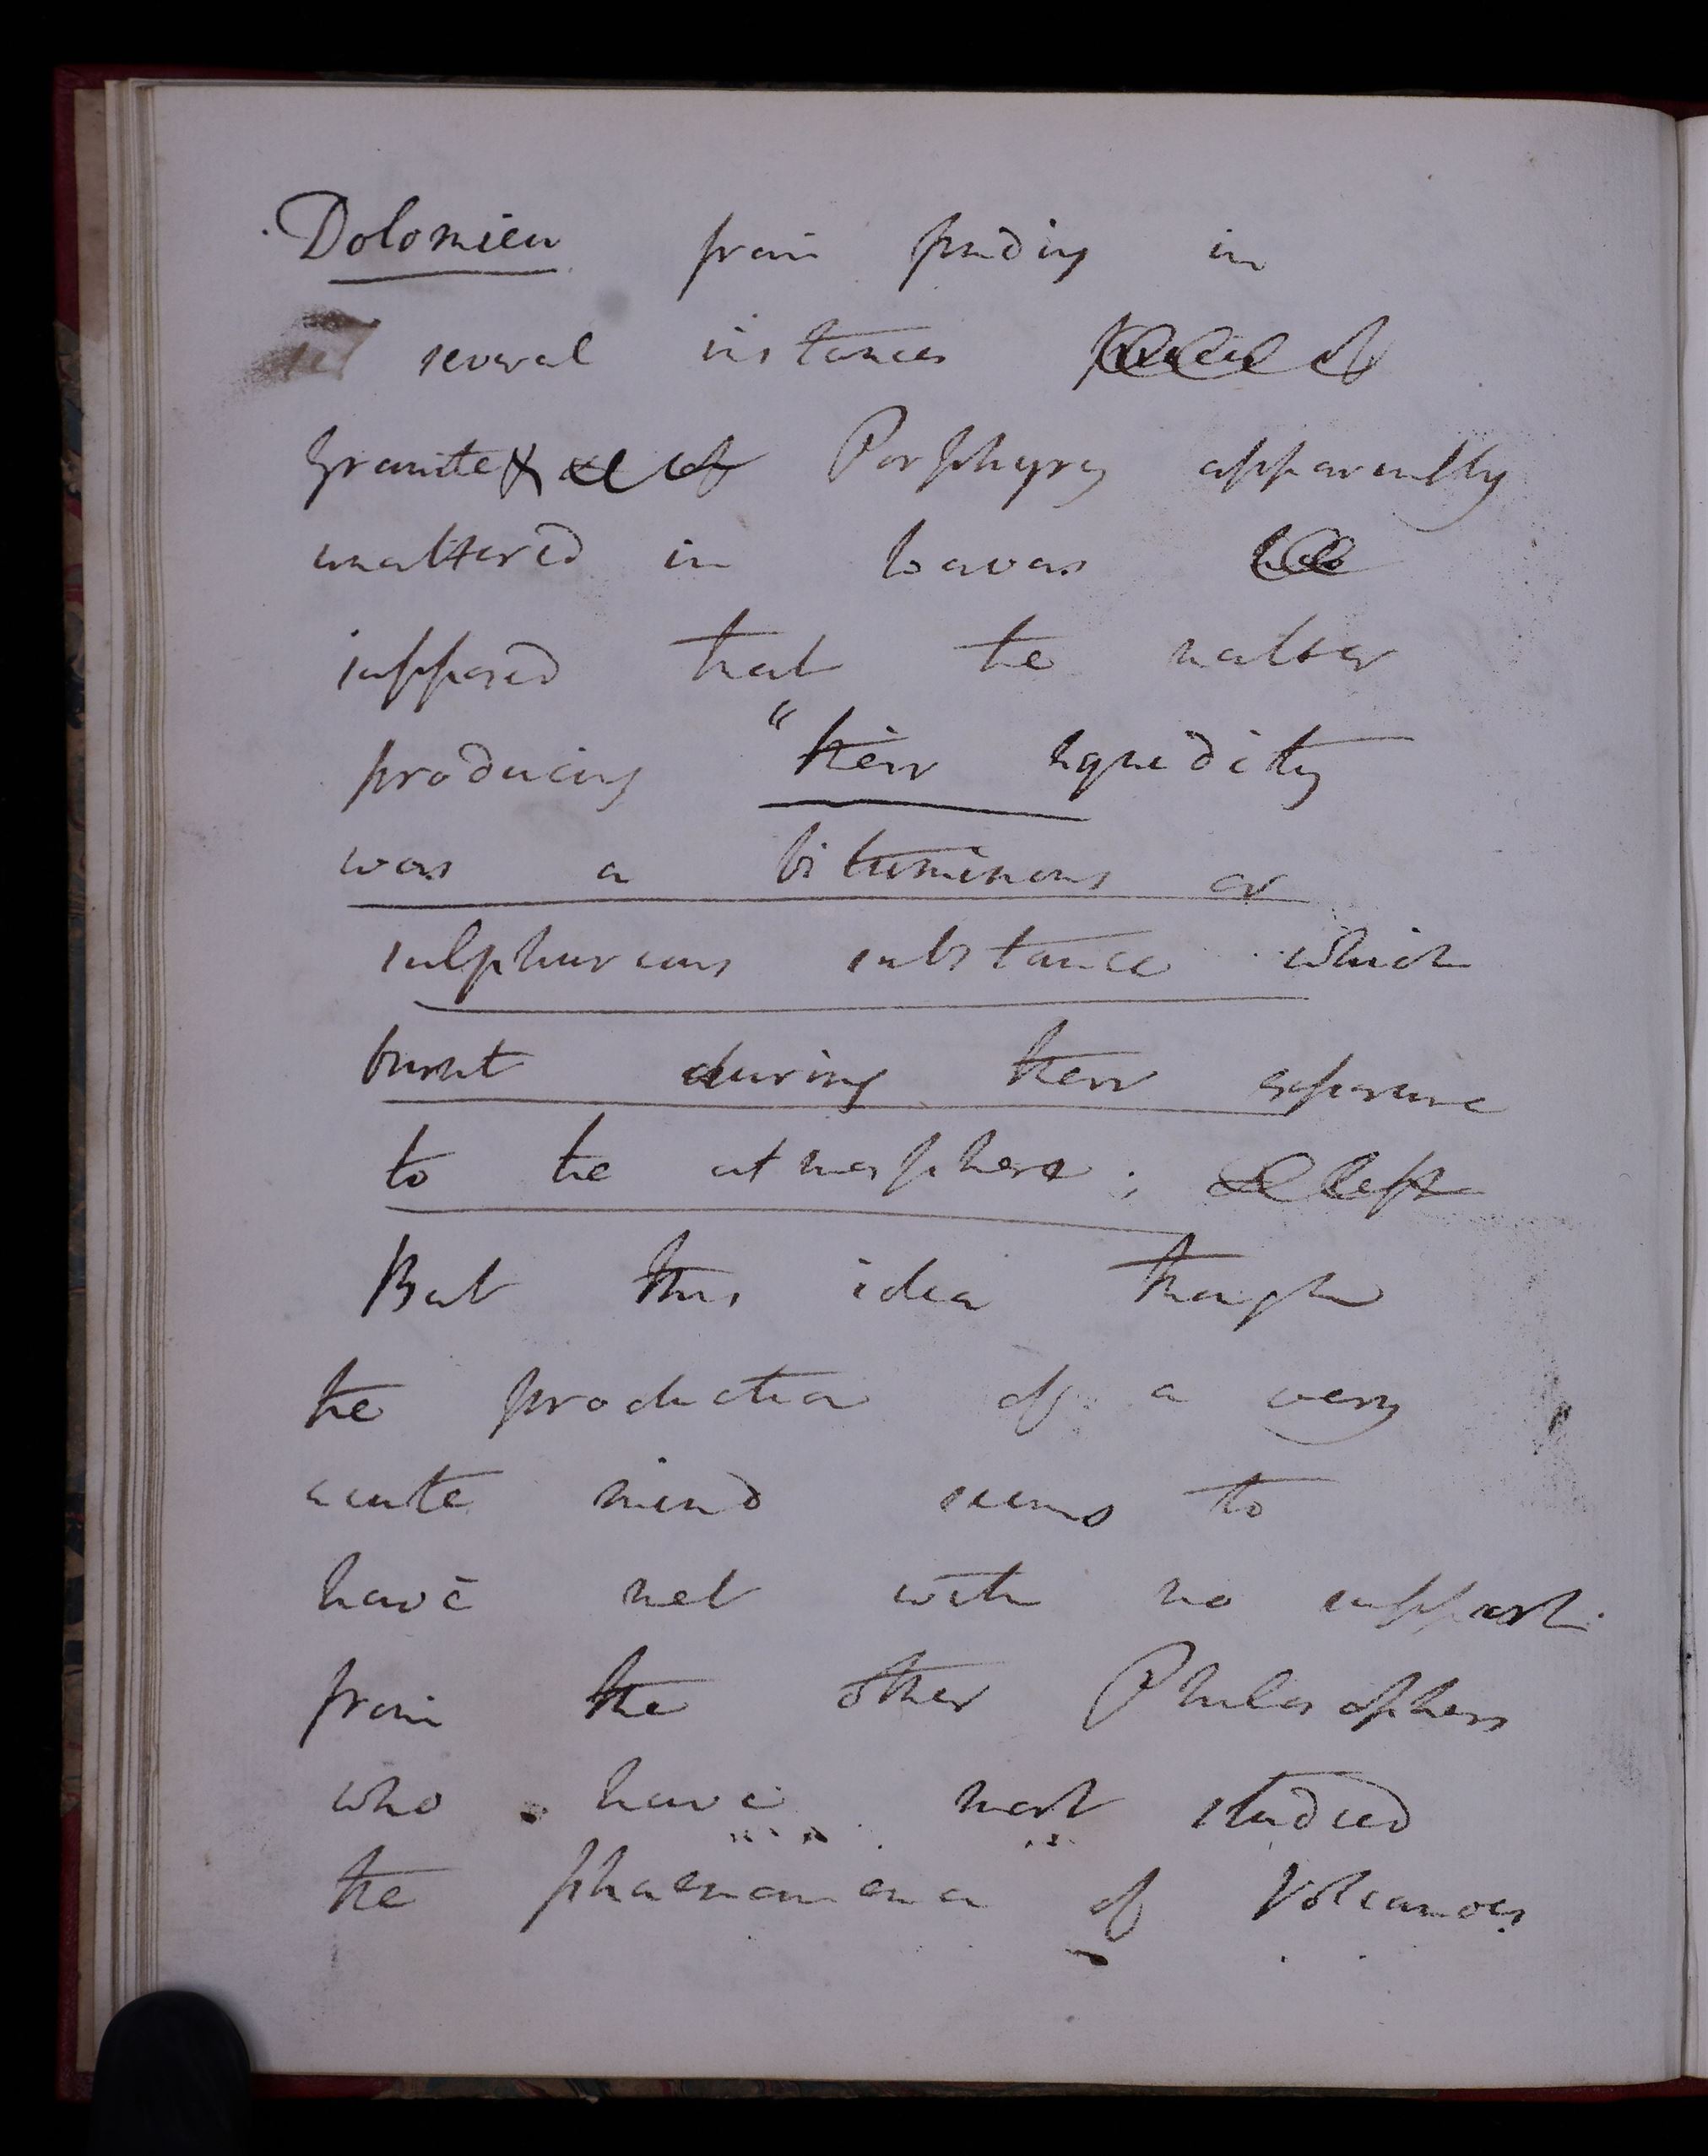 Dolomieu from finding in
several instances
granite & Porphyry apparently
unaltered in Lavas
supposed that the matter
producing "their liquidity
was a bituminous or
sulphureous substance which
burnt during their exposure
to the atmosphere; left
But this idea though
the production of a very
acute mind seems to
have met with no support
from the other Philosophers
who have most studied
the phaenomena of Volcanoes